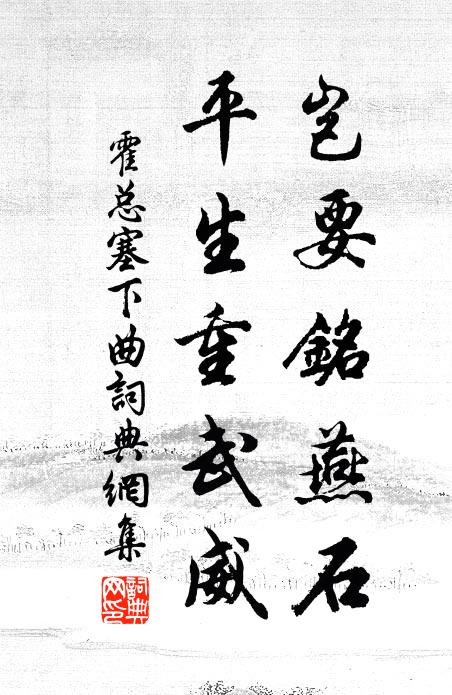 岂要銘燕石
平生重武威
霍总塞下曲詞典網集
詞典網印